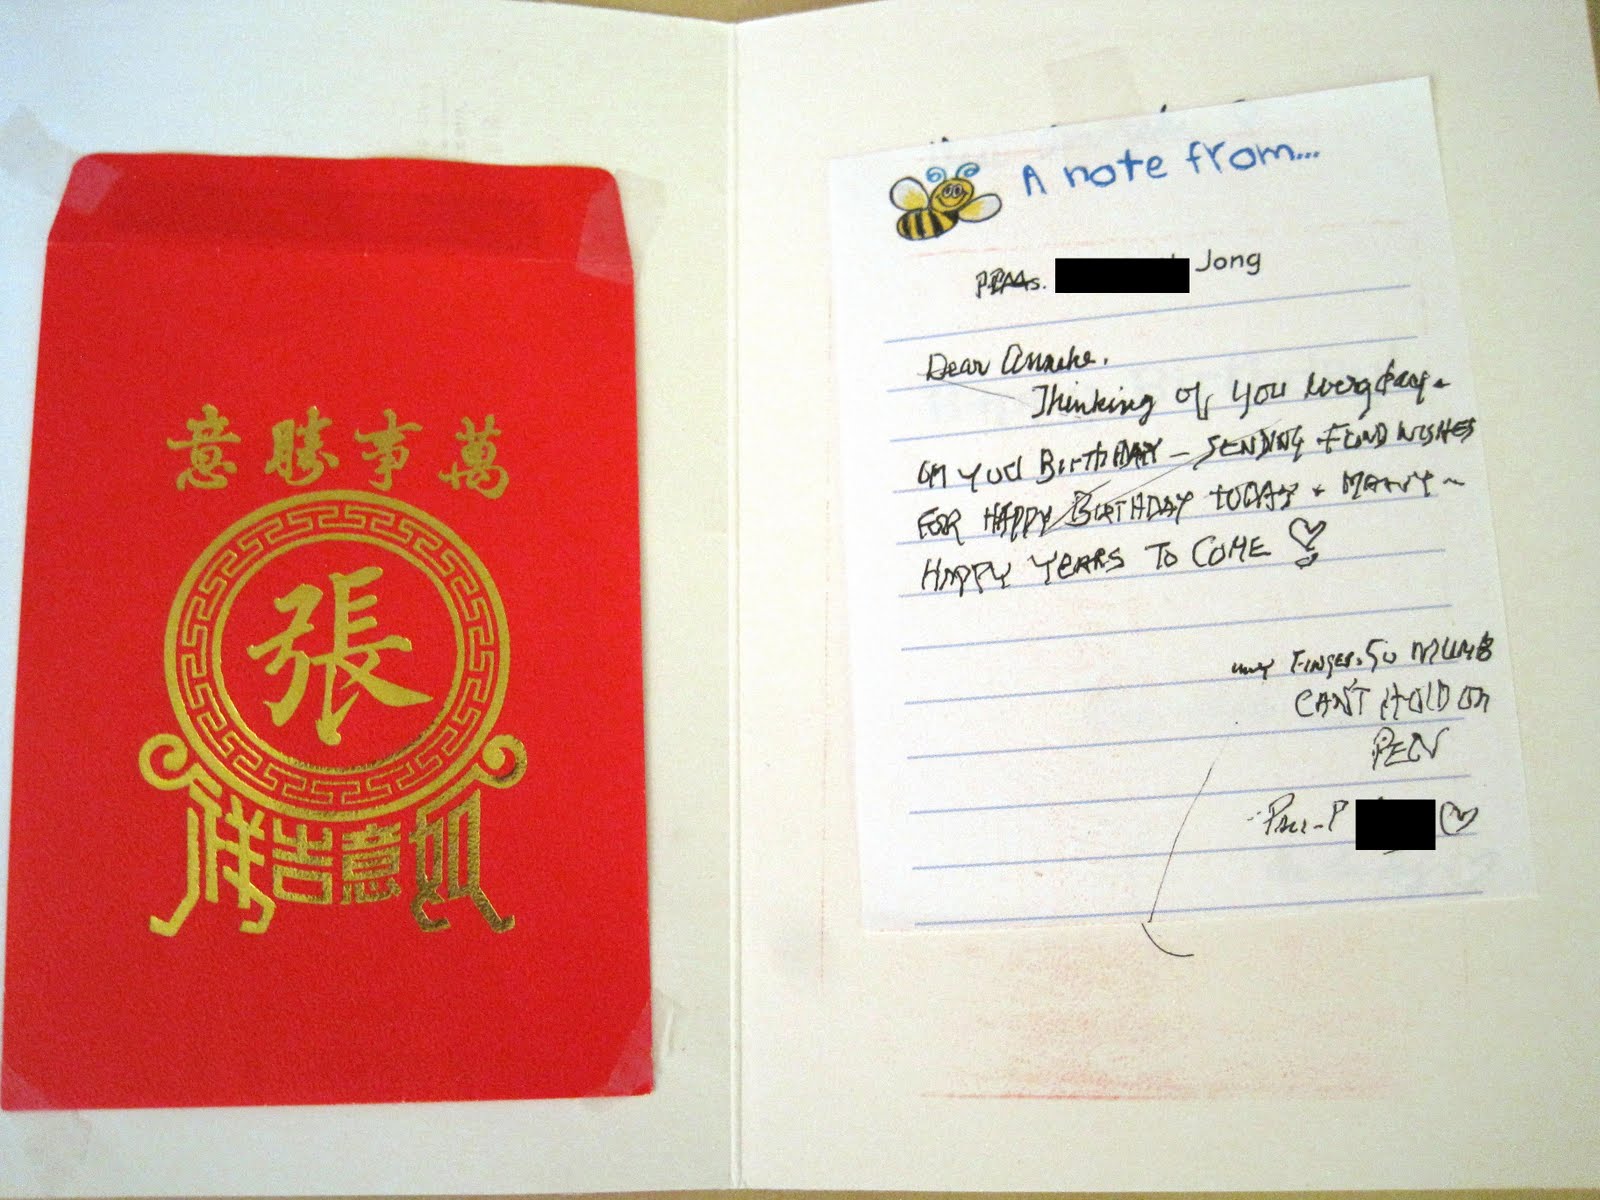 萬事勝意
張
如意吉祥
A note from...
Jong
Dear Anneke.
Thinking of you everyday.
on you BirthDAY – SENDING FOND WISHES
FOR HAPPY BIRTHDAY TODAY + MANY ~
HAPPY YEARS TO COME
my FINGER. SO NUMB
CAN'T HOLD on
PEN